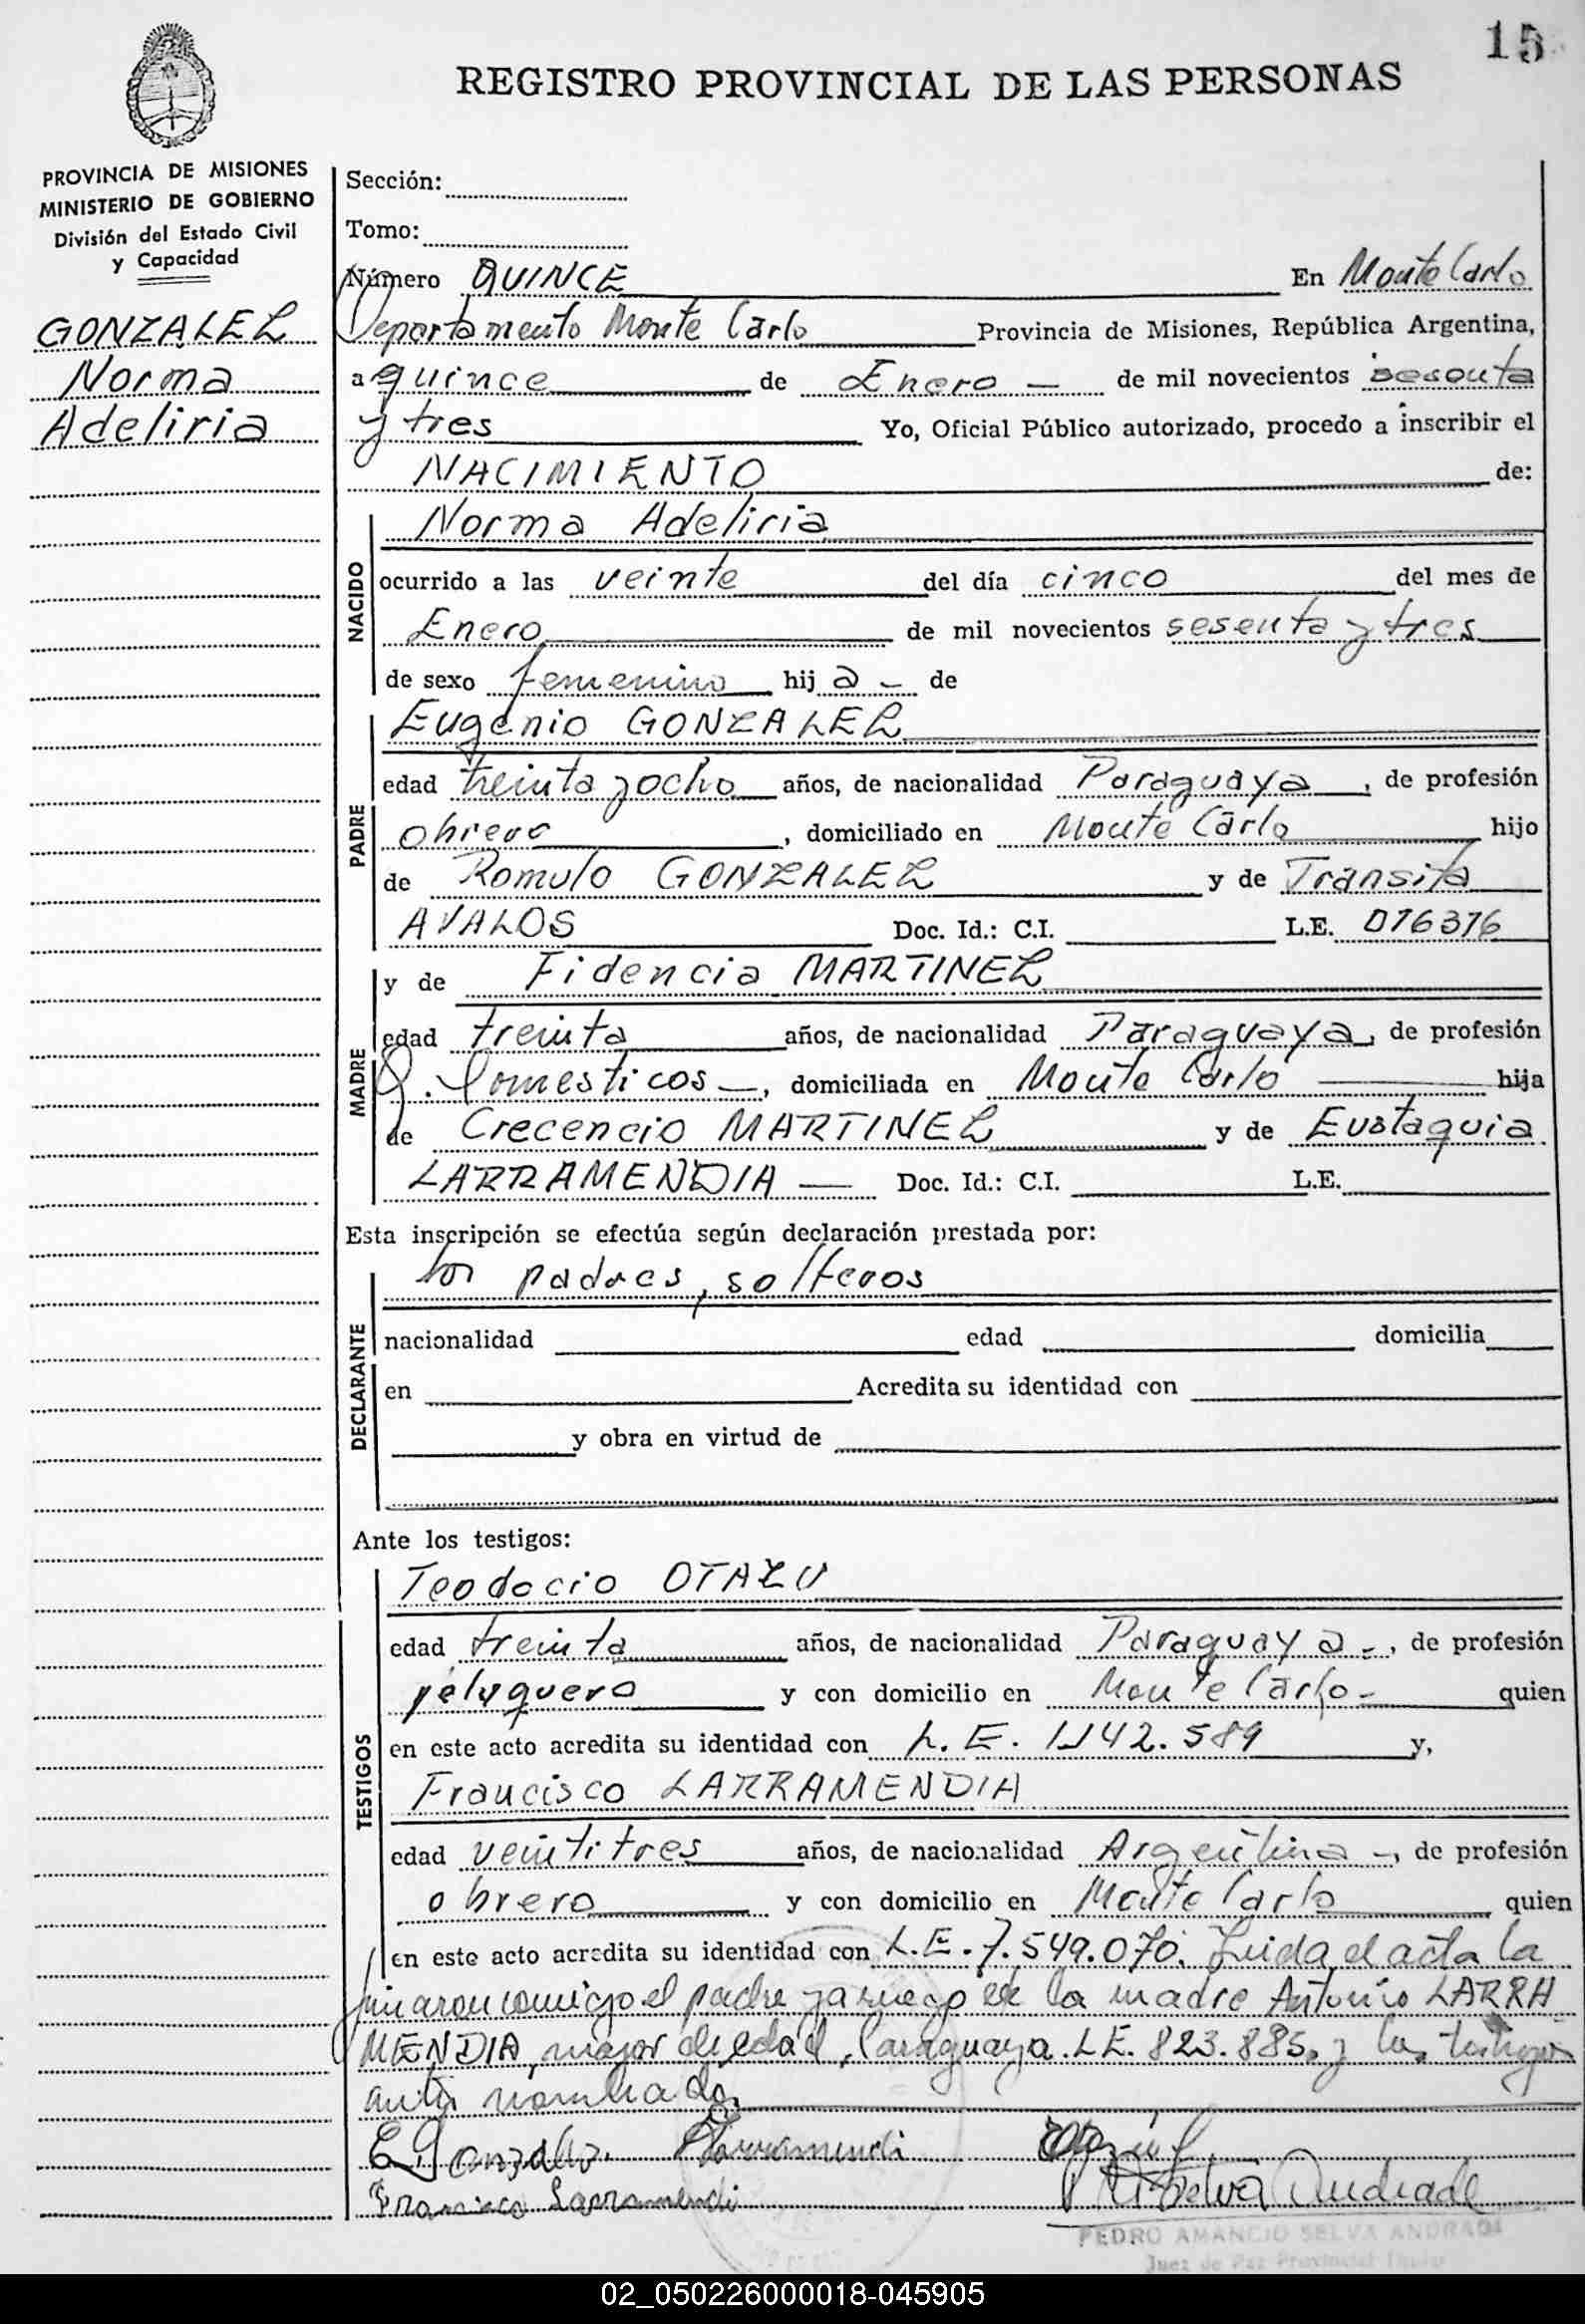 15
REGISTRO PROVINCIAL DE LAS PERSONAS
PROVINCIA DE MISIONES
MINISTERIO DE GOBIERNO
División del Estado Civil
y Capacidad
GONZALEZ
Norma
Adeliria
Sección:
Tomo:
Número QUINCE En Monte Carlo
Departamento Monte Carlo Provincia de Misiones, República Argentina,
a quince de Enero — de mil novecientos sesenta
y tres Yo, Oficial Público autorizado, procedo a inscribir el
NACIMIENTO de:
NACIDO
Norma Adeliria
ocurrido a las veinte del día cinco del mes de
Enero de mil novecientos sesenta y tres
de sexo femenino hij a - de
PADRE
Eugenio GONZALEZ
edad treinta y ocho años, de nacionalidad Paraguaya, de profesión
obrero, domiciliado en Monte Carlo hijo
de Romulo GONZALEZ y de Transita
AVALOS Doc. Id.: C.I. L.E. 076376
MADRE
y de Fidencia MARTINEZ
edad treinta años, de nacionalidad Paraguaya, de profesión
Q. Domesticos —, domiciliada en Monte Carlo hija
de Crecencio MARTINEZ y de Eustaquia
LARRAMENDIA — Doc. Id.: C.I. L.E.
Esta inscripción se efectúa según declaración prestada por:
DECLARANTE
los padres, solteros
nacionalidad edad domicilia
en Acredita su identidad con
y obra en virtud de
Ante los testigos:
TESTIGOS
Teodocio OTAZU
edad treinta años, de nacionalidad Paraguaya -, de profesión
peluquero y con domicilio en Monte Carlo - quien
en este acto acredita su identidad con L.E. 1.142.589 y,
Francisco LARRAMENDIA
edad veintitres años, de nacionalidad Argentina -, de profesión
obrero y con domicilio en Monte Carlo quien
en este acto acredita su identidad con L.E. 7.549.070. Leida el acta la
firmaron conmigo el padre y a ruego de la madre Antonio LARRA
MENDIA, mayor de edad, Paraguaya. LE. 823.885. y los testigos
antes nombrados
E Gonzalez. Larramendi
Francisco Larramendi P A Selva Andrade
PEDRO AMANCIO SELVA ANDRADE
Juez de Paz Provincial Titular
02_050226000018-045905